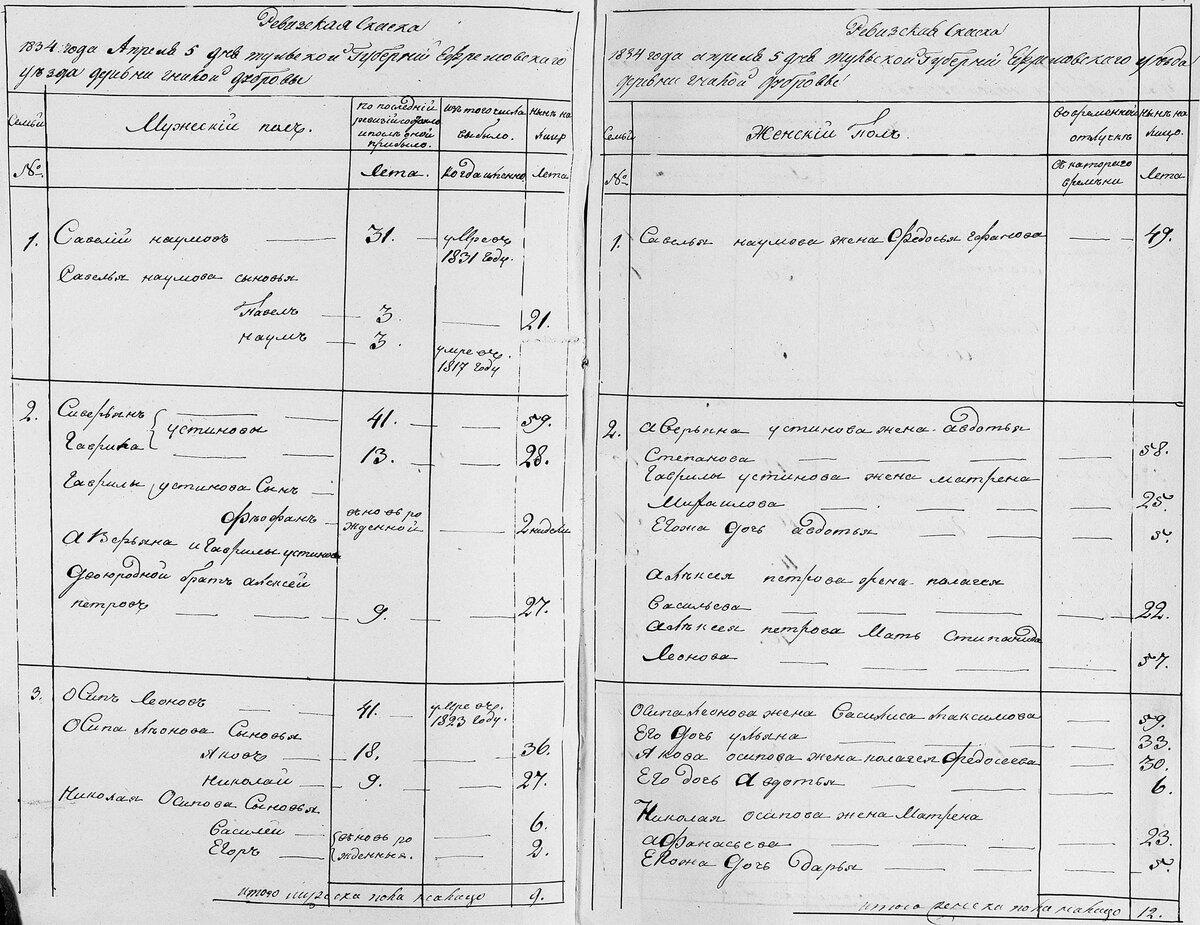 Ревизская скаска
1834 года Апреля 5 дня тульской Губернии Ефремовского
уезда деревни гнилой дубровы
Семьи
Мужескiй полъ.
по последнiй
ревизiи состояло
и после оной
прибыло.
изъ того числа
выбыло.
ныне на
лицо
№
Лета.
когда именно
Лета
1.
Савелiй наумовъ 31. умре въ
1831 году.
Савелья наумова сыновья
Павелъ 3. 21.
наумъ 3. умре въ.
1817 году
2.
Сиверьянъ 41. 59.
устиновы
Гаврила 13. 28.
Гаврилы устинова Сынъ
Феофанъ вновь ро
жденной 2 недели
аверьяна и Гаврилы устинова
Двоюродной братъ алексей
петровъ 9. 27.
3.
Осипъ Леоновъ 41. умре въ.
1823 году.
Осипа Леонова Сыновья
Яковъ 18. 36.
Николай 9. 27.
Николая Осипова Сыновья
Василей вновь ро 6.
Егоръ жденныя. 2.
итого мужеска пола налицо 9.
Ревизская скаска
1834 года апреля 5 дня тульской Губернiй Ефремовского уезда
деревни гнилой дубровы
Семьи
Женскiй Полъ.
Во временной
отлучке
ныне на
лицо.
№
Съ котораго
времени
Лета
1. Савелья наумова жена Федосья 49.
2. аверьяна устинова жена авдотья
Степанова 58.
Гаврилы устинова жена матрена
Михаилова 25.
Егожа дочь авдотья 5.
алексея петрова жена палагея
Васильева 22.
алексея петрова Мать Стипанида
Леонова 57.
Осипа леонова жена Василиса Максимова 59.
Его дочь ульяна 33.
Якова осипова жена палагея Федосеева 30.
Его дочь Авдотья 6.
Николая осипова жена Матрена
афанасьева 23.
Егожа дочь Дарья 5.
итого женска пола налицо 12.